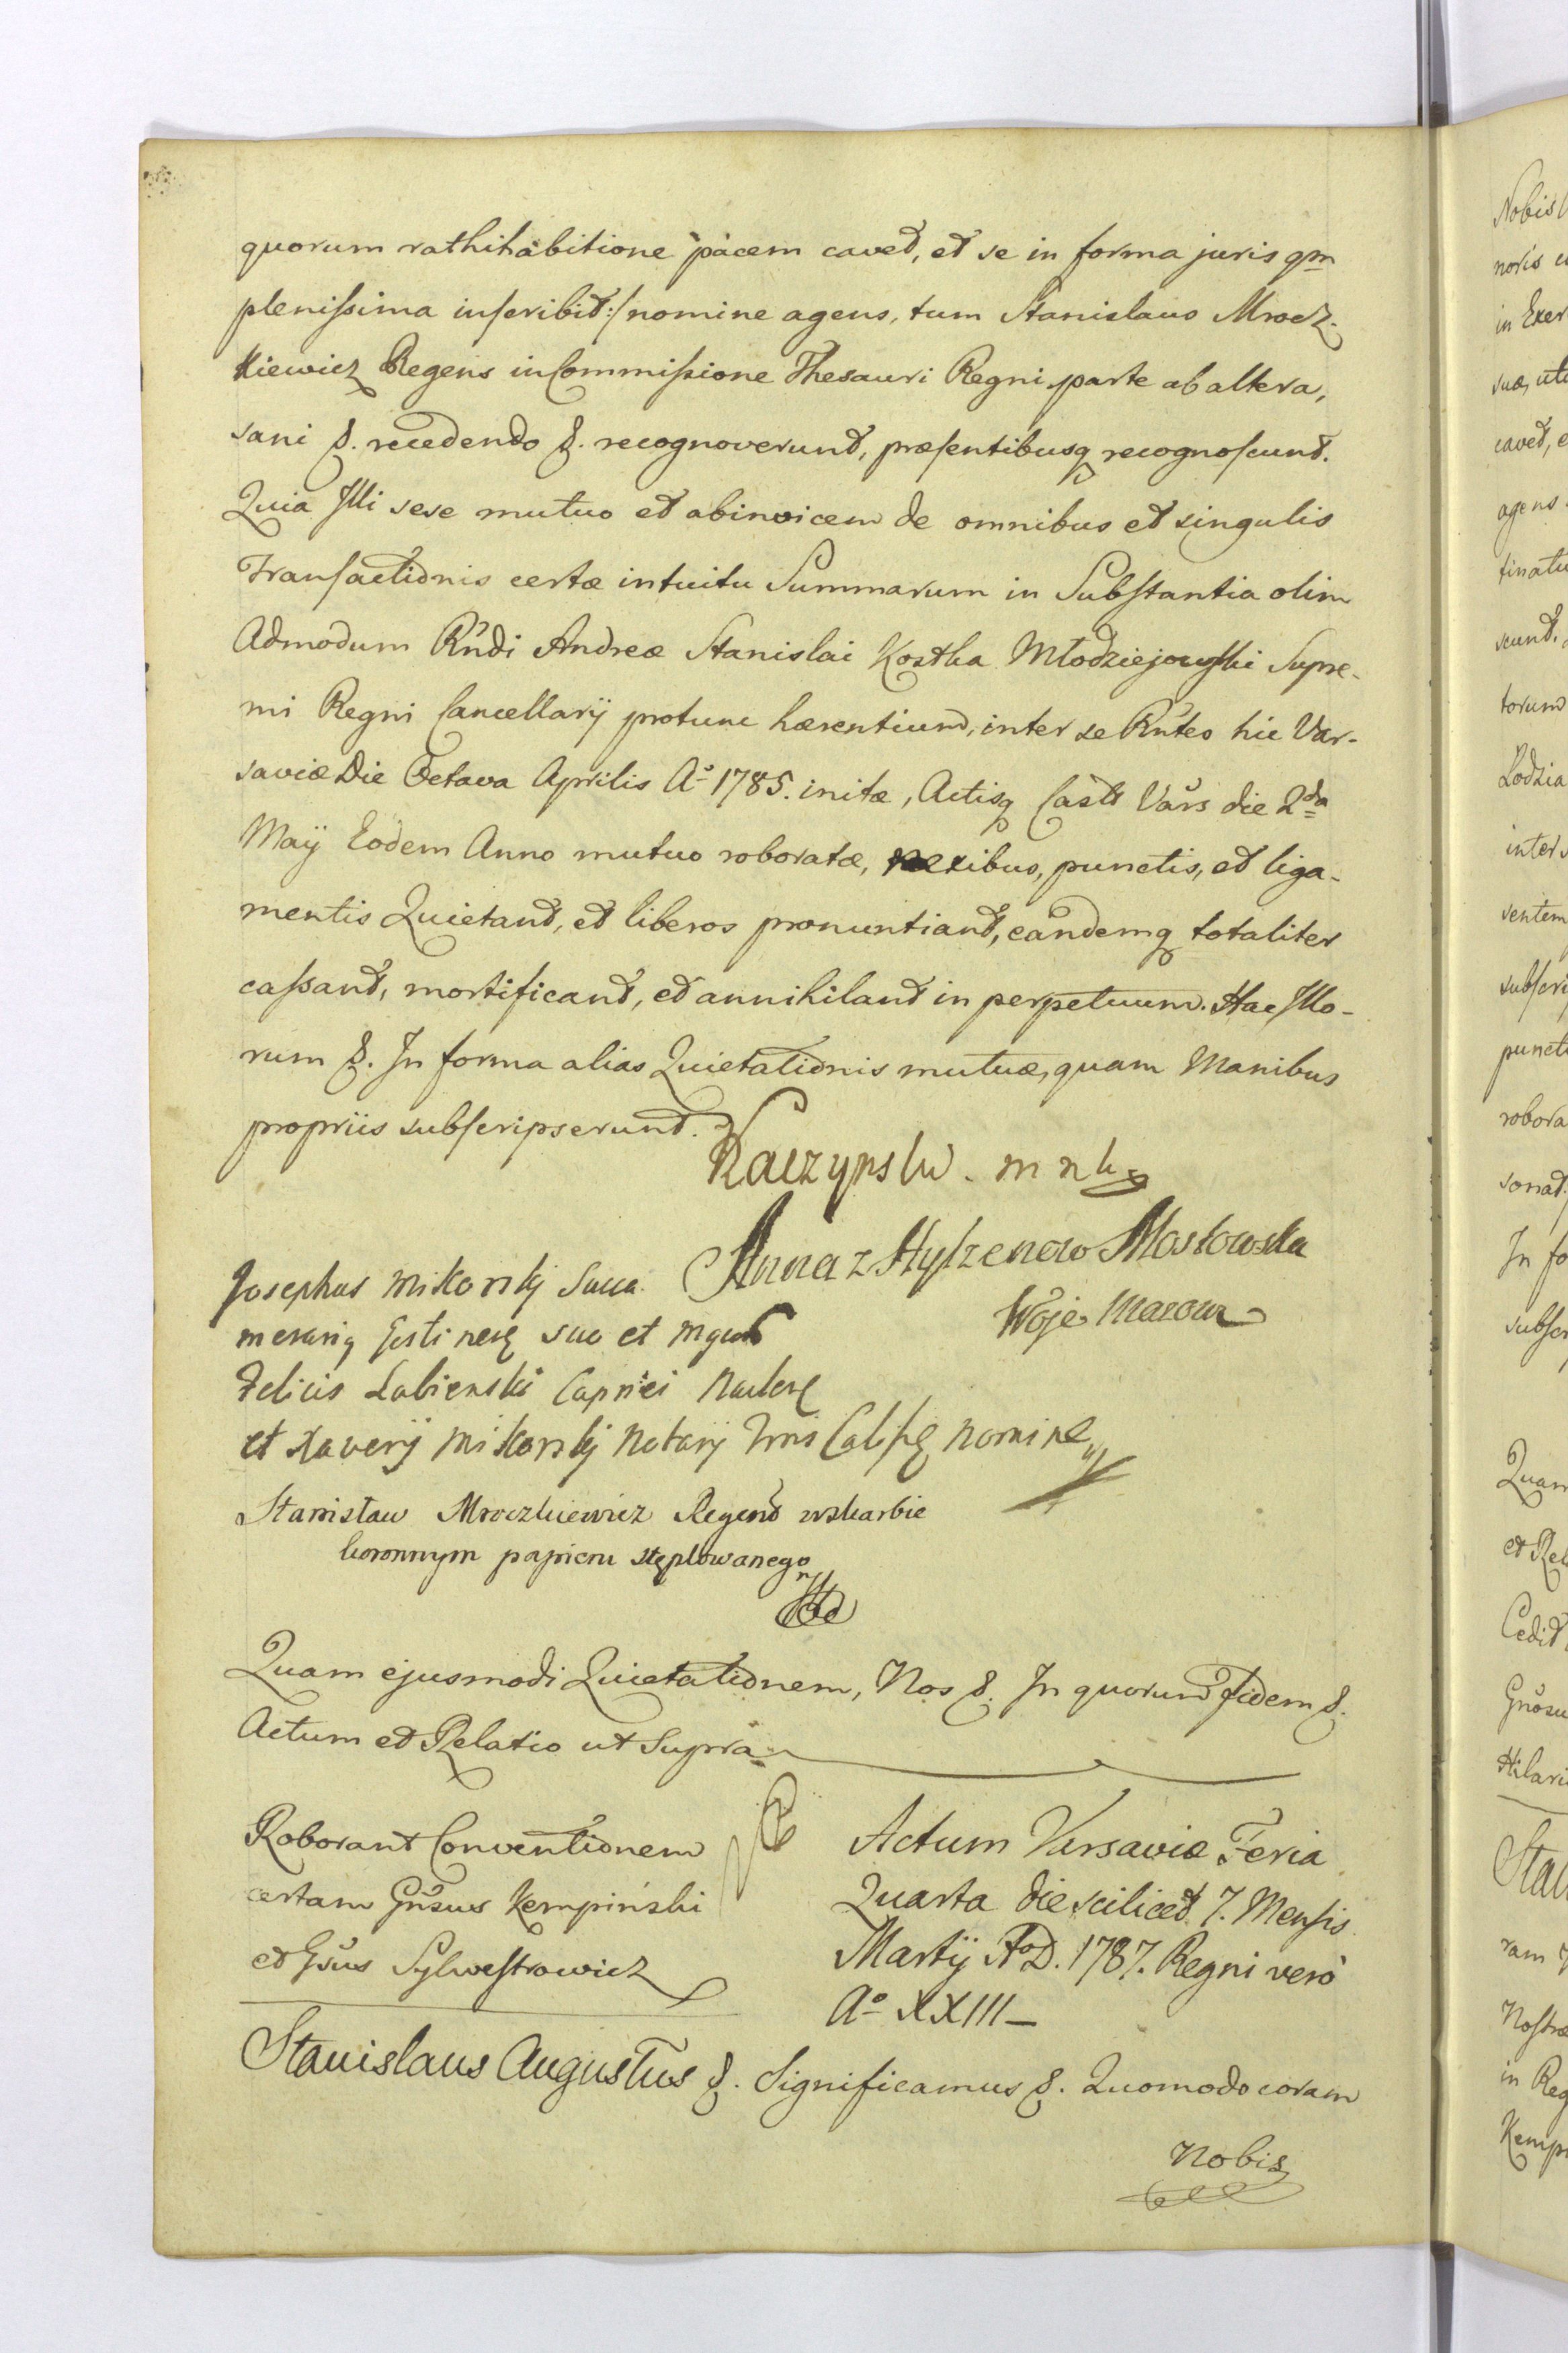 quorum rathihabitione pacem cavet, et se in forma juris qm
plenissima inscribit:/ nomine agens, tum Stanislaus Mrocz-
kiewicz Regens in Commissione Thesauri Regni parte ab altera,
sani &. recedendo &. recognoverunt, præsentibusq recognoscunt.
Quia Illi sese mutuo et abinvicem de omnibus et singulis
Transactionis certæ intuitu Summarum in Substantia olim
Admodum Rndi Andreæ Stanislai Kostka Młodziejowski Supre-
mi Regni Cancellarÿ protunc hærentium, inter se Rntes hic Var-
saviæ Die Octava Aprilis Ao 1785. initæ, Actisq Castr Vars die 2da
Maÿ Eodem Anno mutuo roboratæ, nexibus, punctis, et liga-
mentis Quietant, et liberos pronuntiant, eandemq totaliter
cassant, mortificant, et annihilant in perpetuum. Hac Illo-
rum &. In forma alias Quietationis mutuæ, quam Manibus
propriis subscripserunt.
Raczynski. m
Anna z Hylzenow Mostowska
Woje. Mazow
Josephus Mikorskj Succa
merariq Gosti nesę suo et Mgcor
Felicis Lubienski Capnei
et Xaverÿ Mikorskj Notarÿ Trris nomine
Stanisław Mroczkiewicz Regent w skarbie
koronnym papieru stęplowanego
Quam ejusmodi Quietationem, Nos &. In quorum fidem &.
Actum et Relatio ut Supra
Roborant Conventionem
certam Gnsus Kempiński
et Gsus Sylwestrowicz
Actum Varsaviæ Feria
Quarta die scilicet 7. Mensis
Martÿ A.D. 1787. Regni verò
Ao XXIII
Stanislaus Augustus &. Significamus &. Quomodo coram
Nobis
Nobis
noris
in Exer
suæ, ut
cavet, e
agens
tinatu
scunt.
torum
Lodzia
inter
sentem
subscri
puncti
robora
sonat
In fo
subscr
Quam
et Rel
Cedit
Gnosu
Hilari
Stan
ram
Nostra
in Reg
Kemp